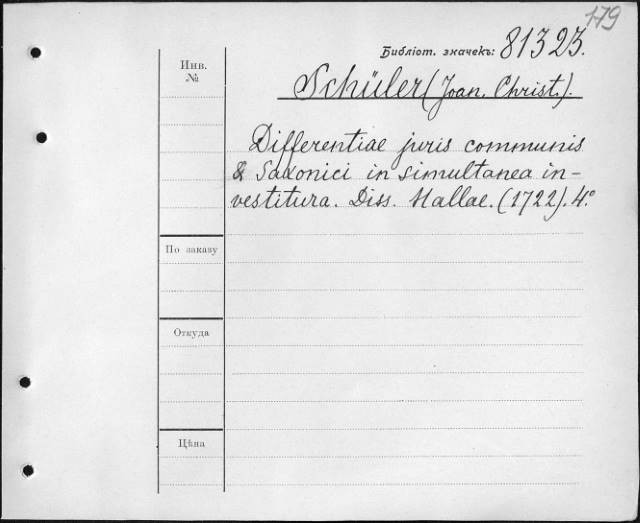 179
Библіот. значекъ: 81323.
Инв.
№
Schüler (Joan. Christ.).
Differentiae juris communis
& Saxonici in simultanea in-
vestitura. Diss. Hallae. (1722). 4.°
По заказу
Откуда
Цѣна